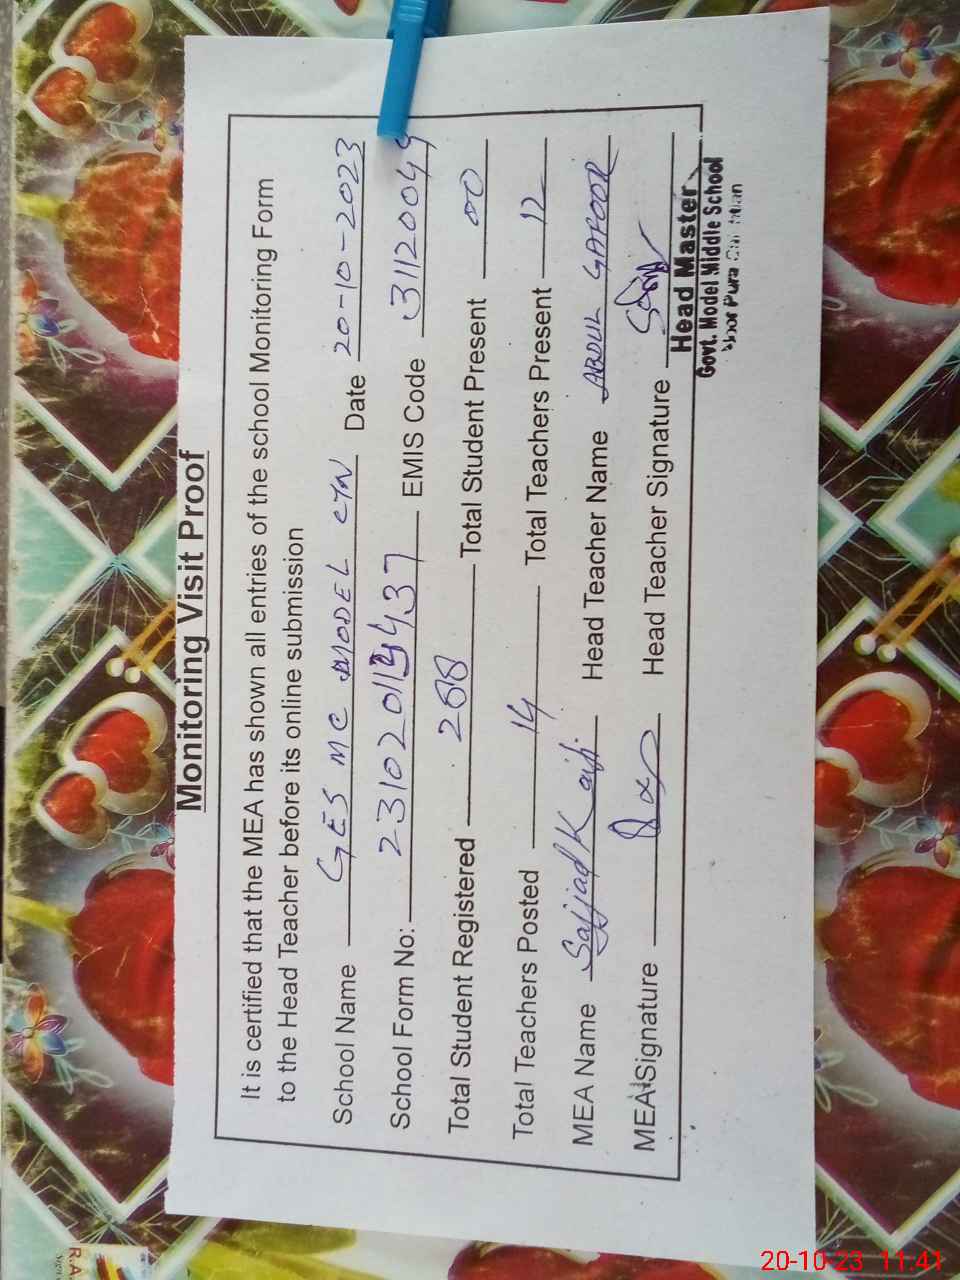 Monitoring Visit Proof
It is certified that the MEA has shown all entries of the school Monitoring Form
to the Head Teacher before its online submission
School Name GES MC MODEL CTN Date 20-10-2023
School Form No: EMIS Code 31120049
Total Student Registered 288 Total Student Present 00
Total Teachers Posted 14 Total Teachers Present 12
MEA Name Sajjad Kaifi Head Teacher Name ABDUL GAFOOR
MEA Signature Head Teacher Signature
Head Master
Govt. Model Middle School
Noor Pura
R.A
20-10-23 11:41